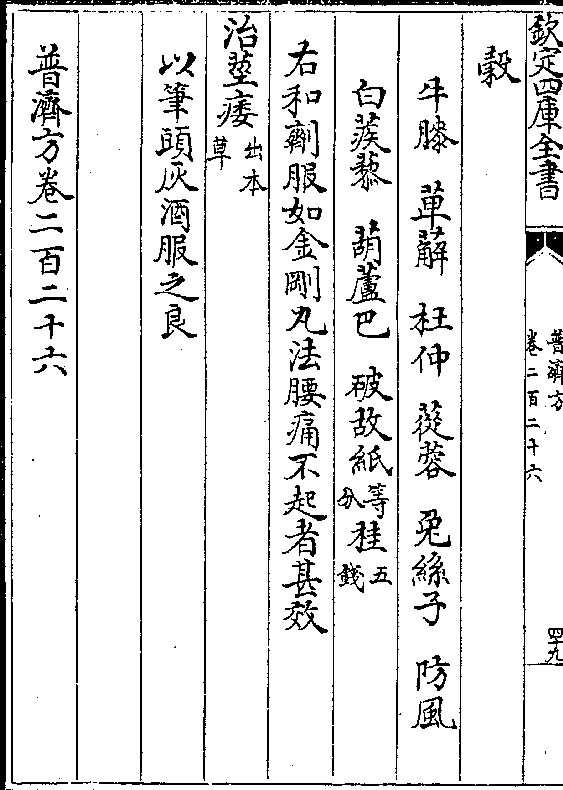 欽定四庫全書
普濟方
卷二百二十六
四十九
穀
牛膝 萆薢 杜仲 蓯蓉 兎絲子 防風
白蒺藜 葫蘆巴 破故紙等分 桂五錢
右和劑服如金剛丸法腰痛不起者甚效
治莖痿出本草
以筆頭灰酒服之良
普濟方卷二百二十六